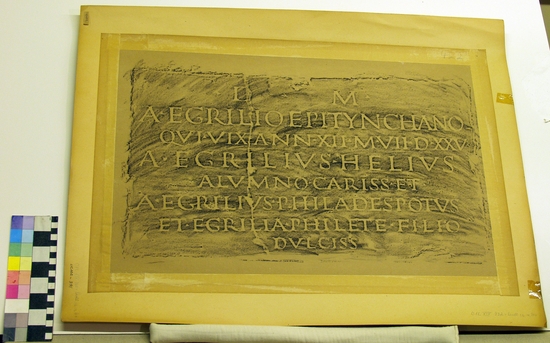 D M
A·EGRILIO EPITYNCHANO
QVI·VIX·ANN·XII·M·VII·D·XXV
A·EGRILIVS·HELIVS
ALVMNO·CARISS·ET
A·EGRILIVS·PHILADESPOTVS
ET·EGRILIA·PHILETE·FILIO
DVLCISS